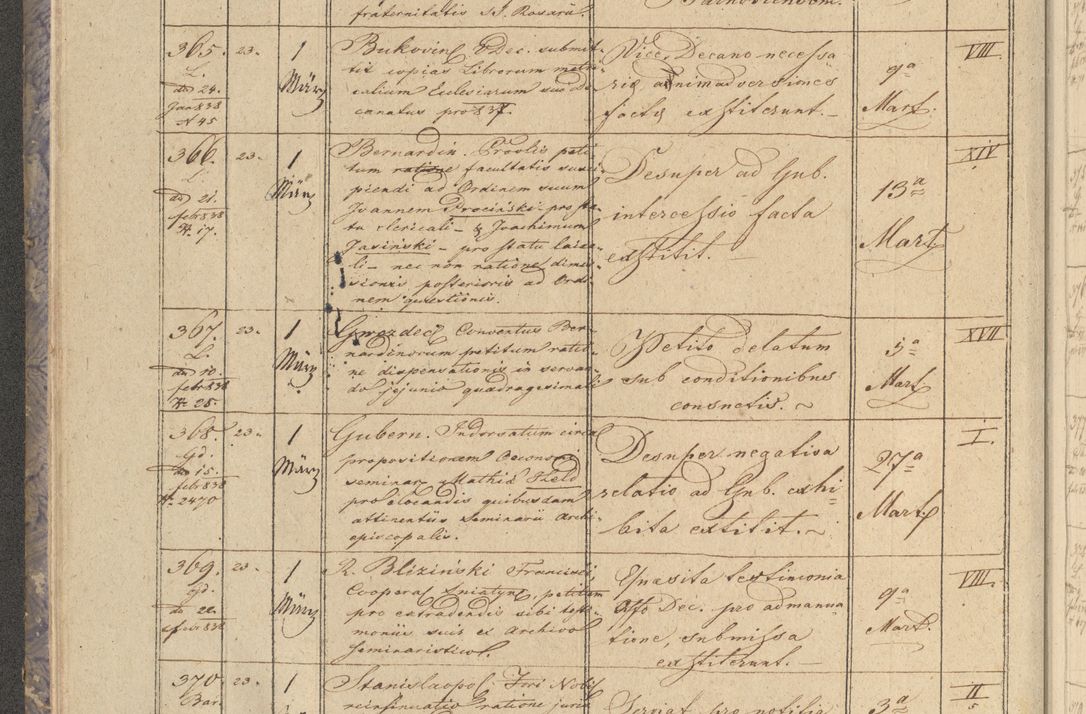 fraternitatis SS. Rosarii.
365. 23. 1 März
L.
dto 24.
Jan 838
N 45
Bukovin VDec. submit-
tit copias Librorum metri-
calium Ecclesiarum sui De-
canatus pro 837.
Vice Decano necessa
riæ animadversiones
factæ exstiterunt. –
9a
Mart.
VIII
366. 23. 1 März
L.
dto 21.
febr 838
N. 17.
Bernardin. Provlis peti-
tum ratione facultatis susci-
piendi ad Ordinem suum
Joannem Prociński pro sta-
tu clericali – & Joachimum
Jasiński – pro statu laica-
li – nec non ratione dimis-
sionis posterioris ad Ordi-
nem quæstionis.
Desuper ad Gub.
intercessio facta
exstitit. –
13a
Mart
XIV
367. 23. 1 März
L.
dto 10.
febr 838
N 25.
Gwozdec Conventus Ber-
nardinorum petitum ratio-
ne dispensationis in servan-
do jejunio quadragesimali
Petito delatum
sub conditionibus
consuetis. ~
5a
Mart
XVII
368. 23. 1 März
gd.
dto 15.
febr 838
N. 2470
Gubern. Indorsatum circa
propositionem Oeconomi
seminar Mathiæ Field
pro elocandis quibusdam
attinentiis Seminarii Archi-
episcopalis.
Desuper negativa
relatio ad Gub. exhi-
bita extitit. ~
27a
Mart.
I.
369. 23. 1 März
gd.
dto 22.
febr 838
R. Bliziński Francisci,
Cooperat Sniatyn, petitum
pro extradendis sibi testi-
moniis suis ex Archivo
seminaristico.
Quæsita testimonia
Offo Dec. pro admanua
tione, submissa
exstiterunt. –
9a
Mart.
VIII
370 23. 1
Bar.
Stanislaopol. Fori Nobil
reinsinuatio ratione juris
Serviat pro notitia
3a
II